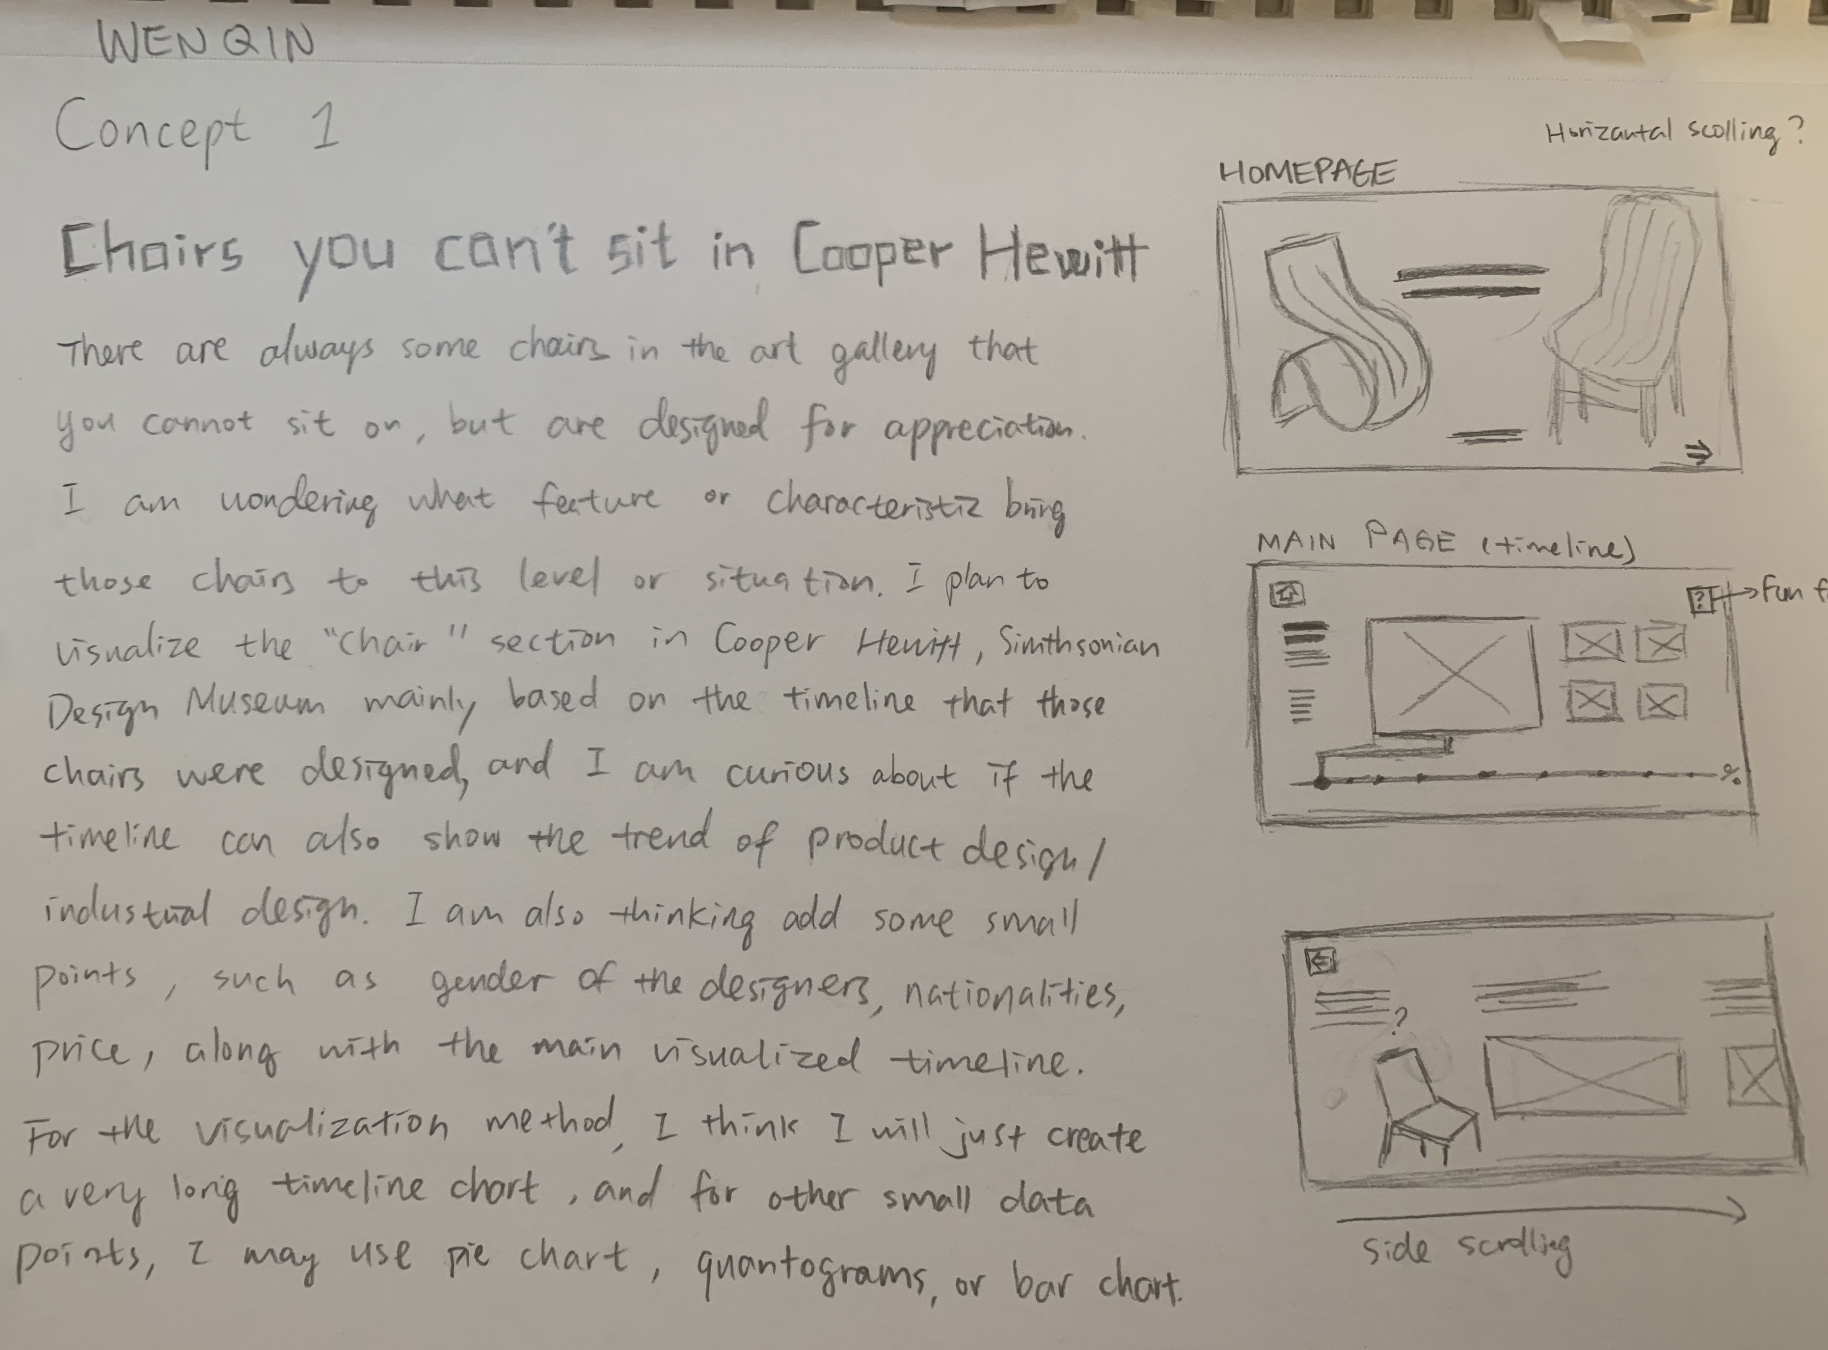 WENQIN
Concept 1
Chairs you can't sit in Cooper Hewitt
There are always some chairs in the art gallery that
you cannot sit on, but are designed for appreciation.
I am wondering what feature or characteristic bring
those chairs to this level or situation. I plan to
visualize the "Chair" section in Cooper Hewitt, Simthsonian
Design Museum mainly based on the timeline that those
chairs were designed, and I am curious about if the
timeline can also show the trend of product design/
industrial design. I am also thinking add some small
points, such as gender of the designers, nationalities,
price, along with the main visualized timeline.
For the visualization method, I think I will just create
a very long timeline chart, and for other small data
points, I may use pie chart, quantograms, or bar chart.
Horizantal scolling?
HOMEPAGE
MAIN PAGE (timeline)
? Fun
%
?
side scrolling